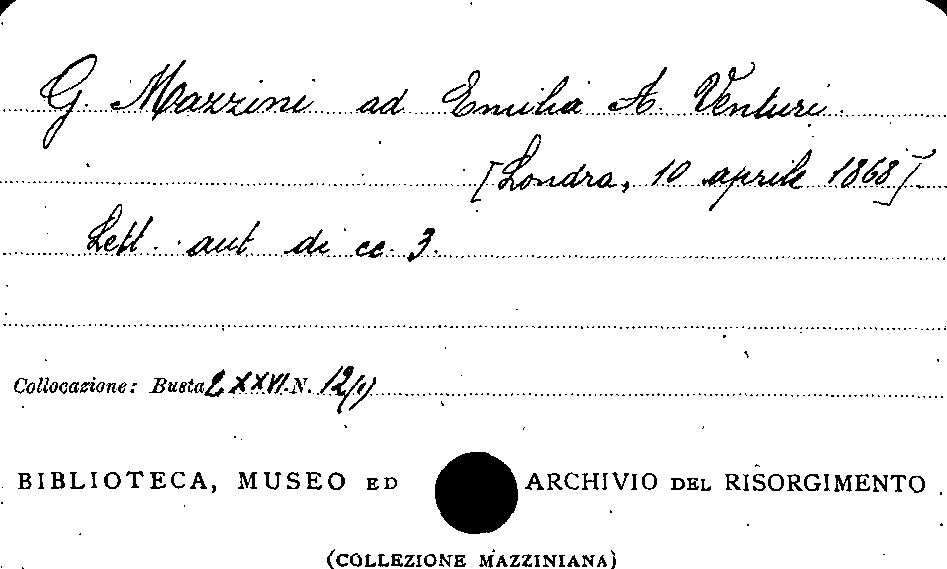 G. Mazzini ad Emilia A. Venturi.
[Londra, 10 aprile 1868].
Lett. aut di cc. 3.
Collocazione: Busta LXXVI. N. 12(1)
BIBLIOTECA, MUSEO ED ARCHIVIO DEL RISORGIMENTO
(COLLEZIONE MAZZINIANA)